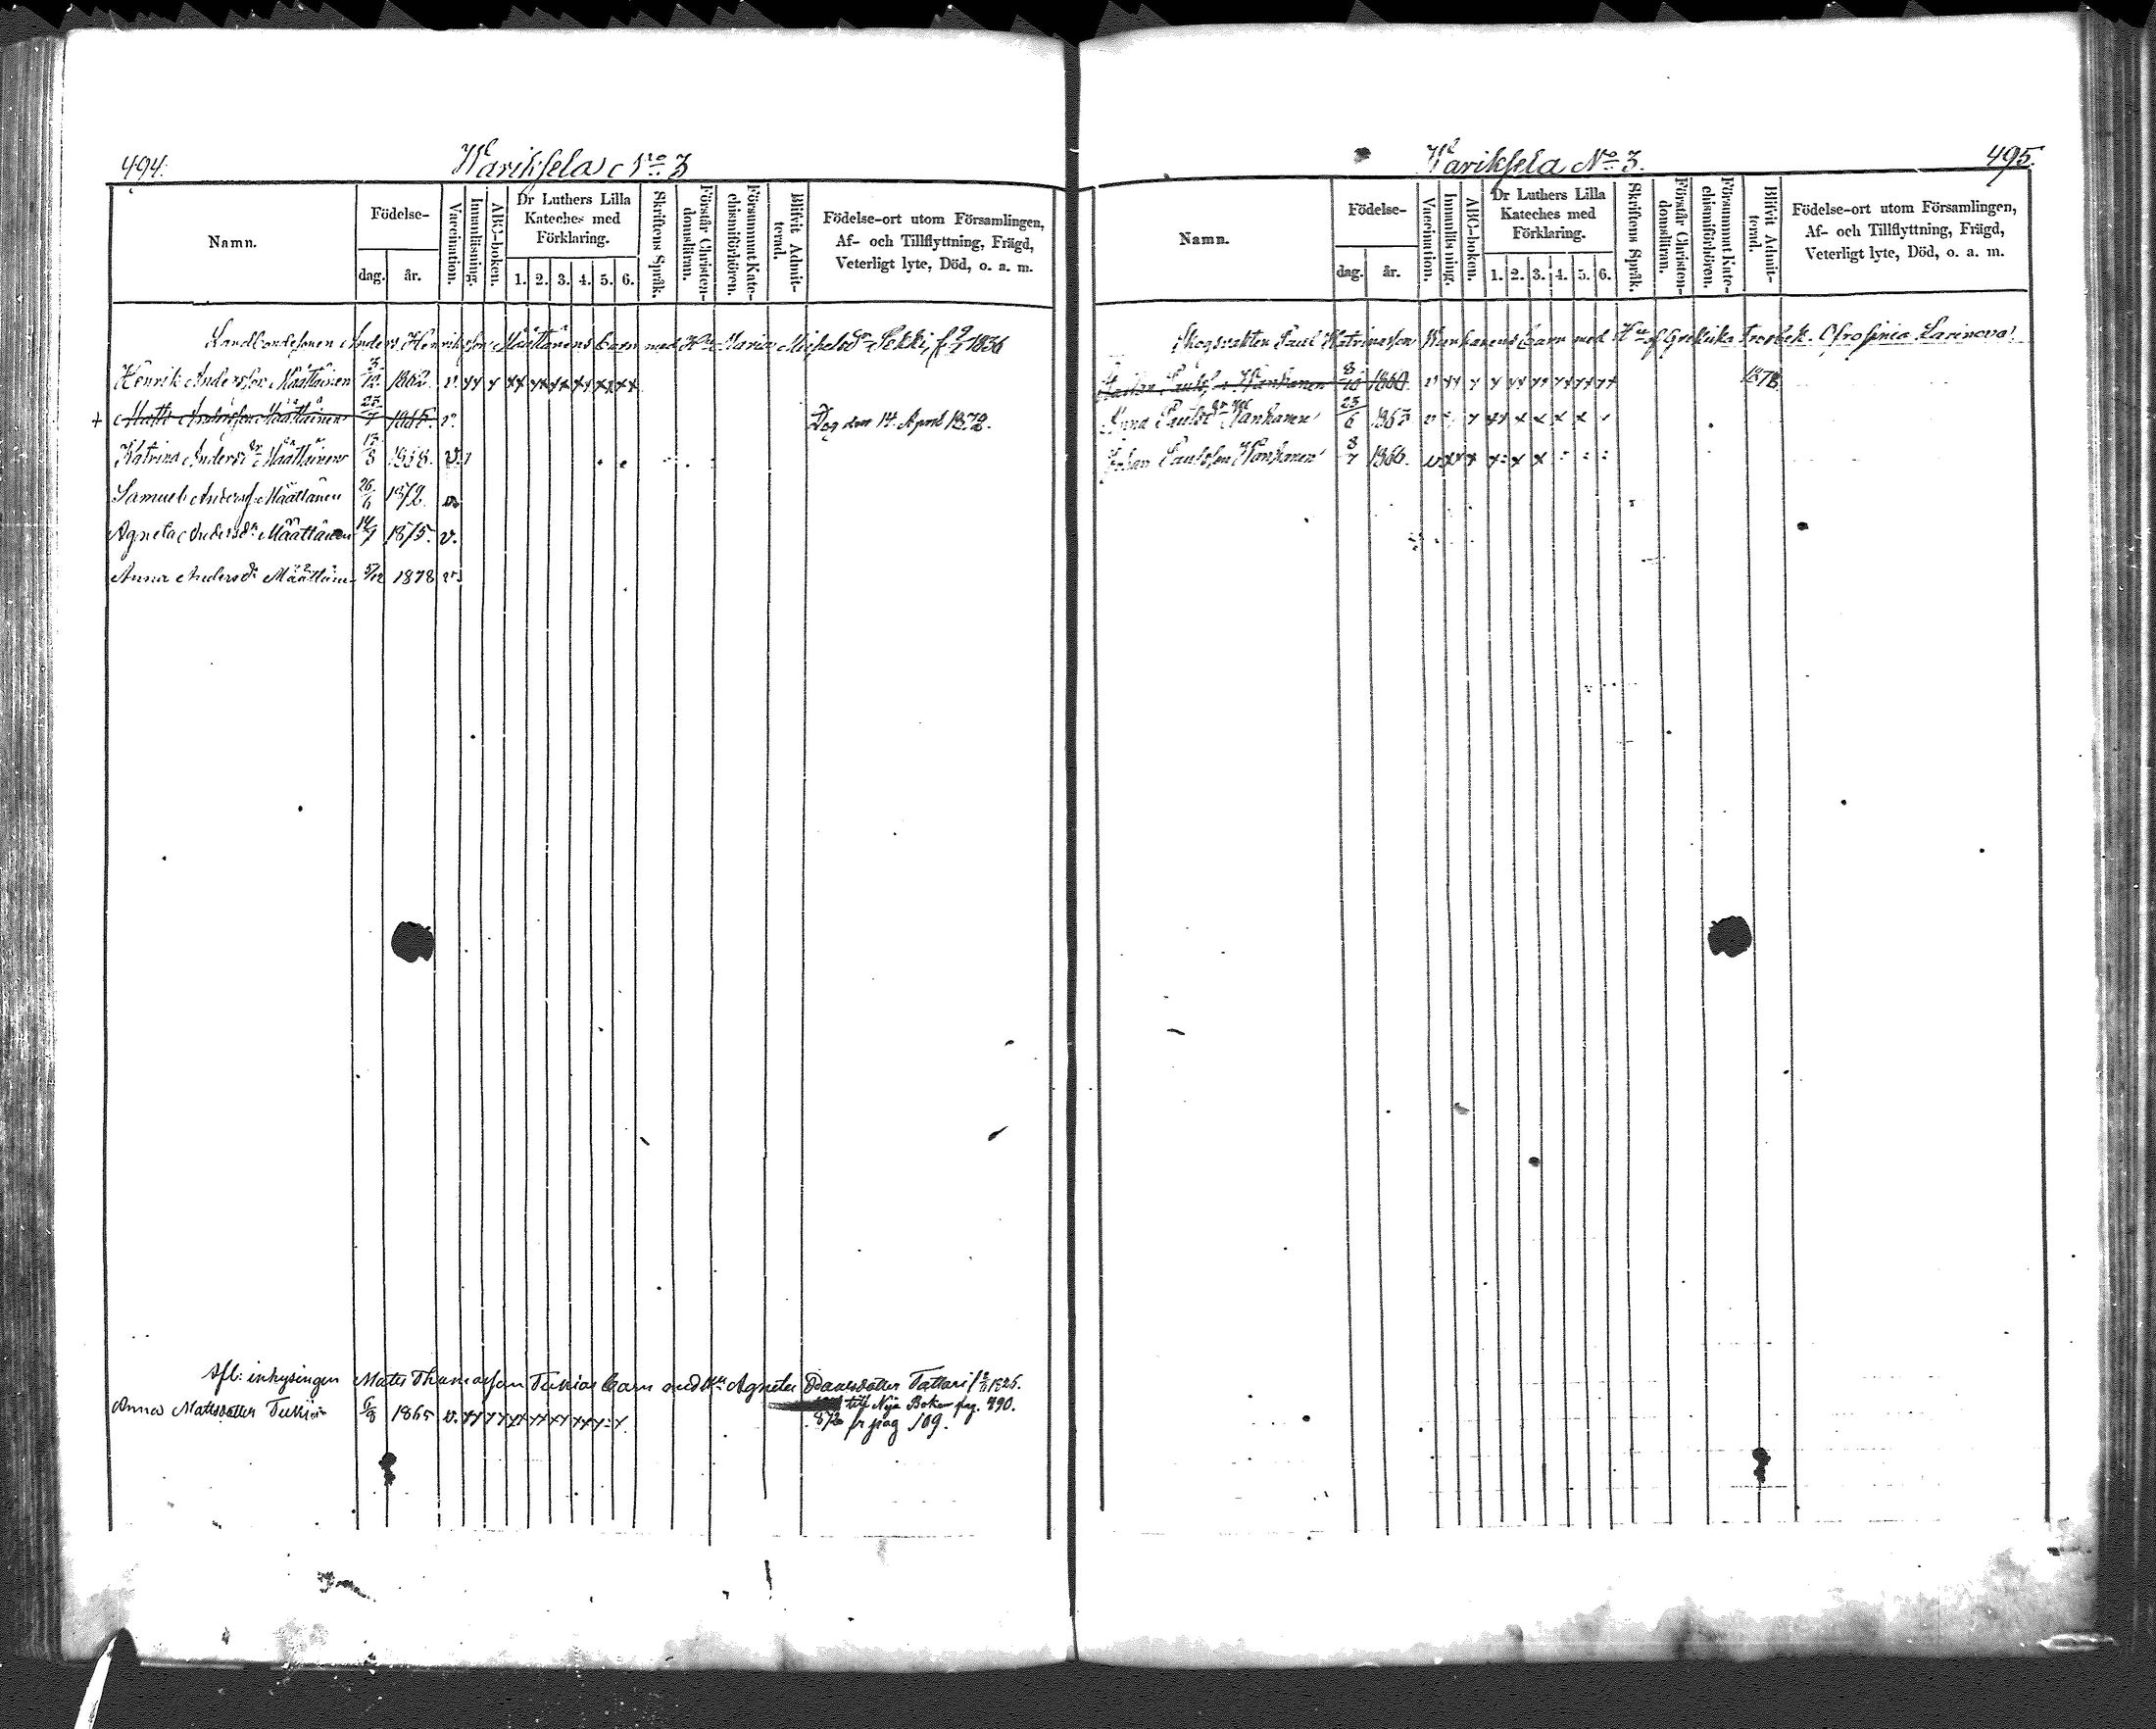 494.
Wariksela No 3
Namn.
Födelse-
dag.
år.
Vaccination.
Innanläsning.
ABC-boken.
Dr Luthers Lilla
Kateches med
Förklaring.
1. 2. 3. 4. 5. 6.
Skriftens Språk.
Förstår Christen-
domsläran.
Försummat Kate-
chismiförhören.
Blifvit Admit-
terad.
Födelse-ort utom Församlingen,
Af- och Tillflyttning, Frägd,
Veterligt lyte, Död, o. a. m.
Anders Henriksson Määttänens barn med Hu Maria Michelsdr 1836
Henrik Andersson Määttäinen 3/12 1862. v. xx x xx xx xx xx xx xx
+ Matts Andersson Määttäinen 23/7 1865. v. Dog den 14 April 1872.
Katrina Andersdr Määttäinen 13/8 1868. v.
Samuel Anderss. Määttänen 26/6 1872. v.
Agneta Andersdr Määttänen 14/1 1875. v.
Anna Andersdr Määttänen 5/12 1878 v.
Afl: inhysingen Matts Thomasson Tukias barn med Hu Agneta Tattari
Anna Mattsdotter 6/8 1865 v. till Nya Boken pag. 890.
fr pag 109.
495.
Wariksela No 3.
Namn.
Födelse-
dag.
år.
Vaccination.
Innanläsning.
ABC-boken.
Dr Luthers Lilla
Kateches med
Förklaring.
1. 2. 3. 4. 5. 6.
Skriftens Språk.
Förstår Christen-
domsläran.
Försummat Kate-
chismiförhören.
Blifvit Admit-
terad.
Födelse-ort utom Församlingen,
Af- och Tillflyttning, Frägd,
Veterligt lyte, Död, o. a. m.
Skogsvakten Paul Katrinasson Wanhanens barn med Hu af Grekiska Trosbek. Ofrosinia Larinova
Wanhanen 8/10 1860. 1878.
Anna Paulsdr Wanhanen 23/6 1863
Johan Paulsson Wanhanen 8/7 1866.